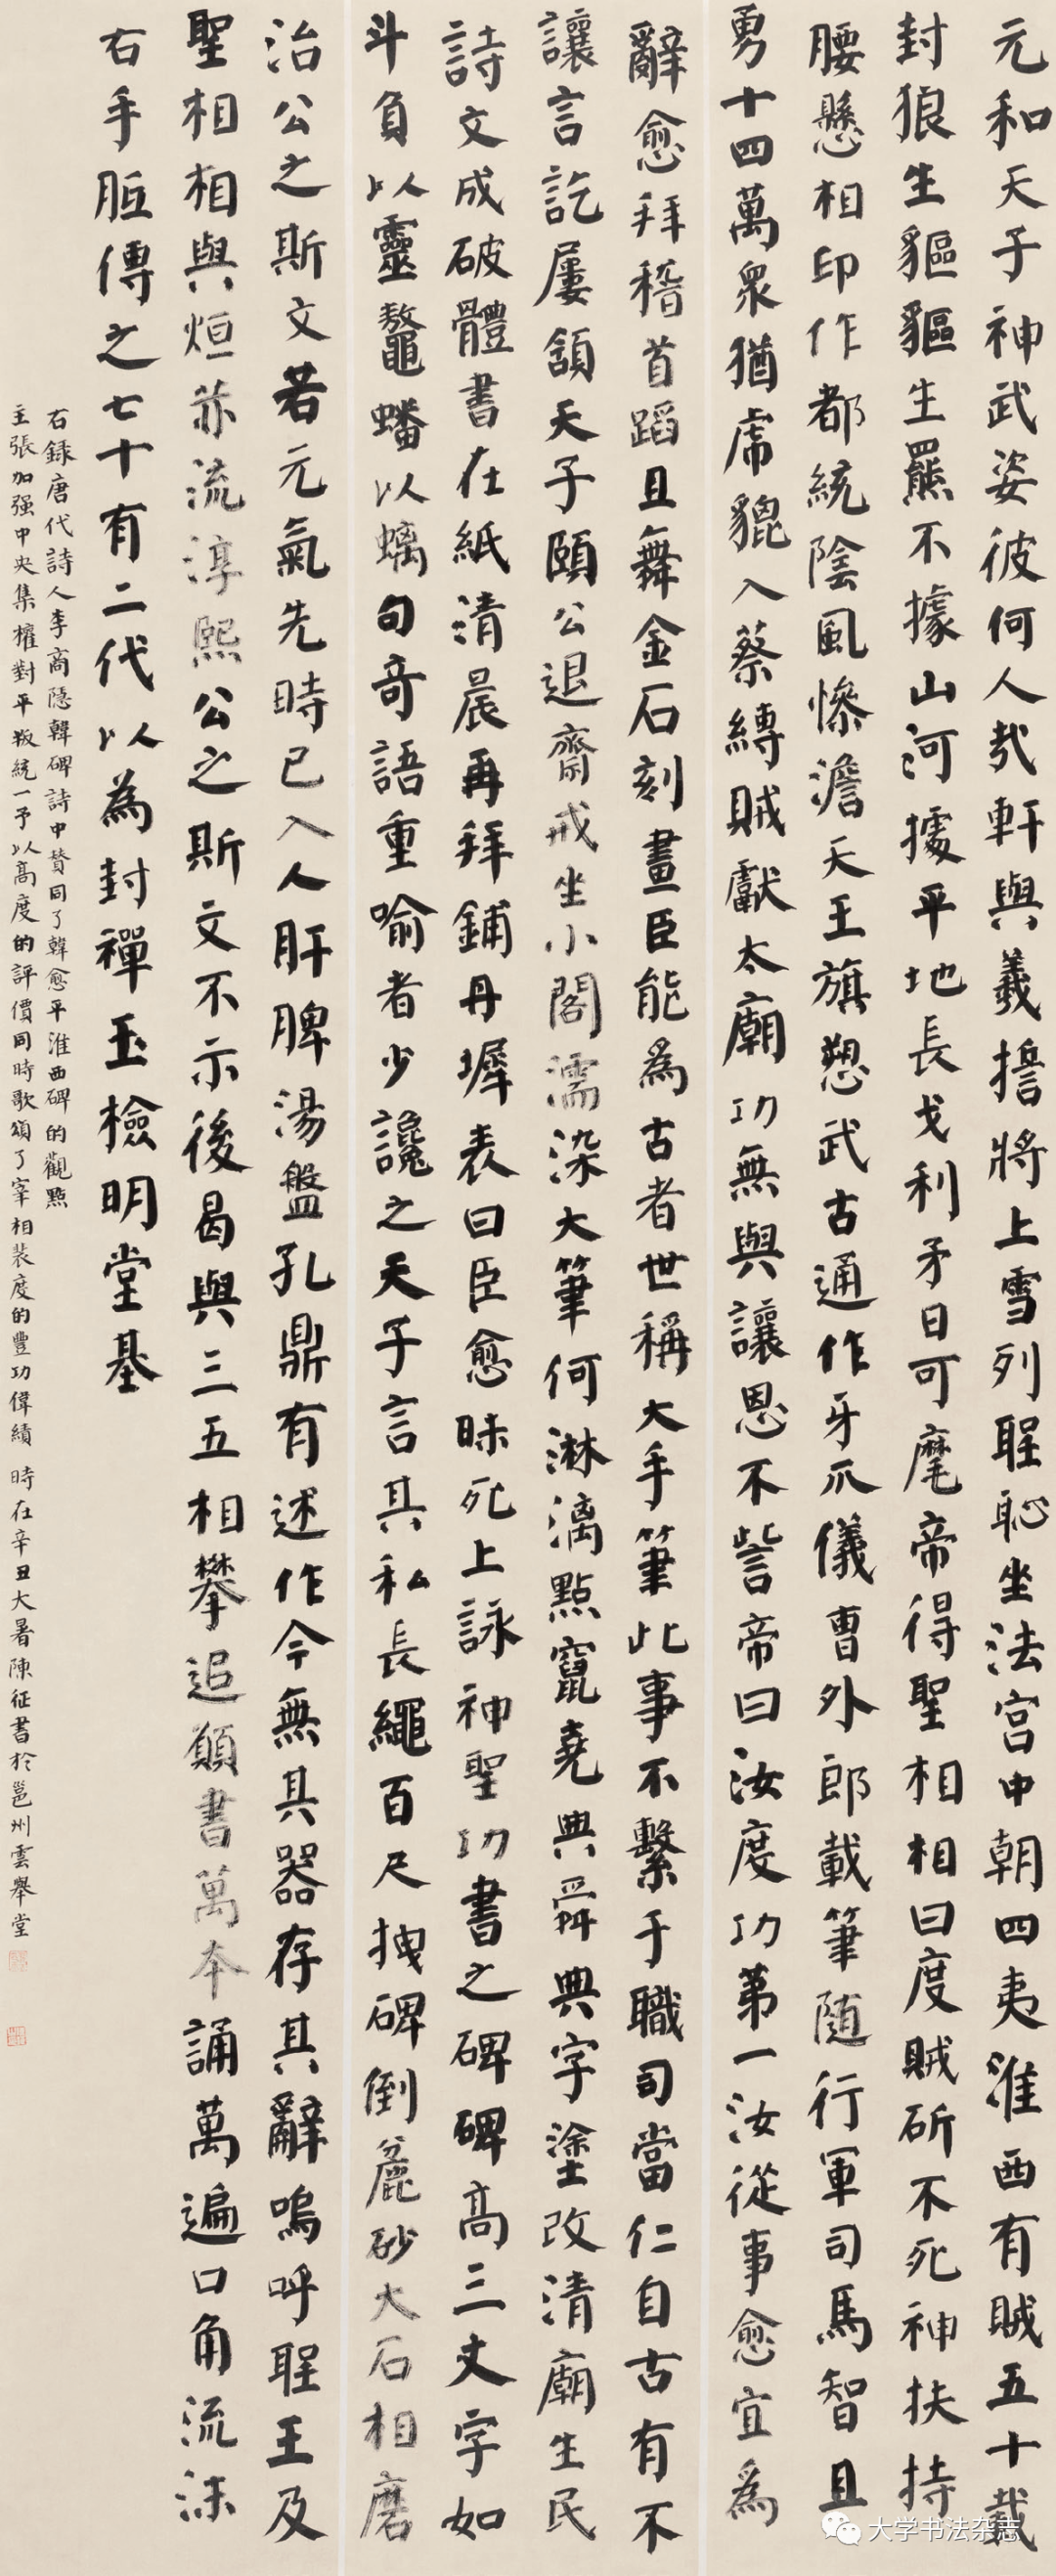 元和天子神武姿彼何人哉軒與羲擔將上雪列聖恥坐法宮中朝四夷淮西有賊五十載
封狼生貙貙生羆不據山河據平地長戈利矛日可麾帝得聖相相曰度賊斫不死神扶持
腰懸相印作都統陰風慘澹天王旗愬武古通作牙爪儀曹外郎載筆隨行軍司馬智且
勇十四萬眾猶虎貔入蔡縛賊獻太廟功無與讓恩不訾帝曰汝度功第一汝從事愈宜爲
辭愈拜稽首蹈且舞金石刻畫臣能爲古者世稱大手筆此事不繫于職司當仁自古有不
讓言訖屢頷天子頤公退齋戒坐小閣濡染大筆何淋漓點竄堯典舜典字塗改清廟生民
詩文成破體書在紙清晨再拜鋪丹墀表曰臣愈昧死上詠神聖功書之碑碑高三丈字如
斗負以靈鼇蟠以螭句奇語重喻者少讒之天子言其私長繩百尺拽碑倒麄砂大石相磨
治公之斯文若元氣先時已入人肝脾湯盤孔鼎有述作今無其器存其辭嗚呼聖王及
聖相相與烜赫流淳熙公之斯文不示後曷與三五相攀追願書萬本誦萬遍口角流沫
右手胝傳之七十有二代以為封禪玉檢明堂基
右録唐代詩人李商隱韓碑詩中贊同了韓愈平淮西碑的觀點
主張加强中央集權對平叛統一予以高度的評價同時歌頌了宰相裴度的豐功偉績 時在辛丑大暑陳征書於邕州雲舉堂
大学书法杂志